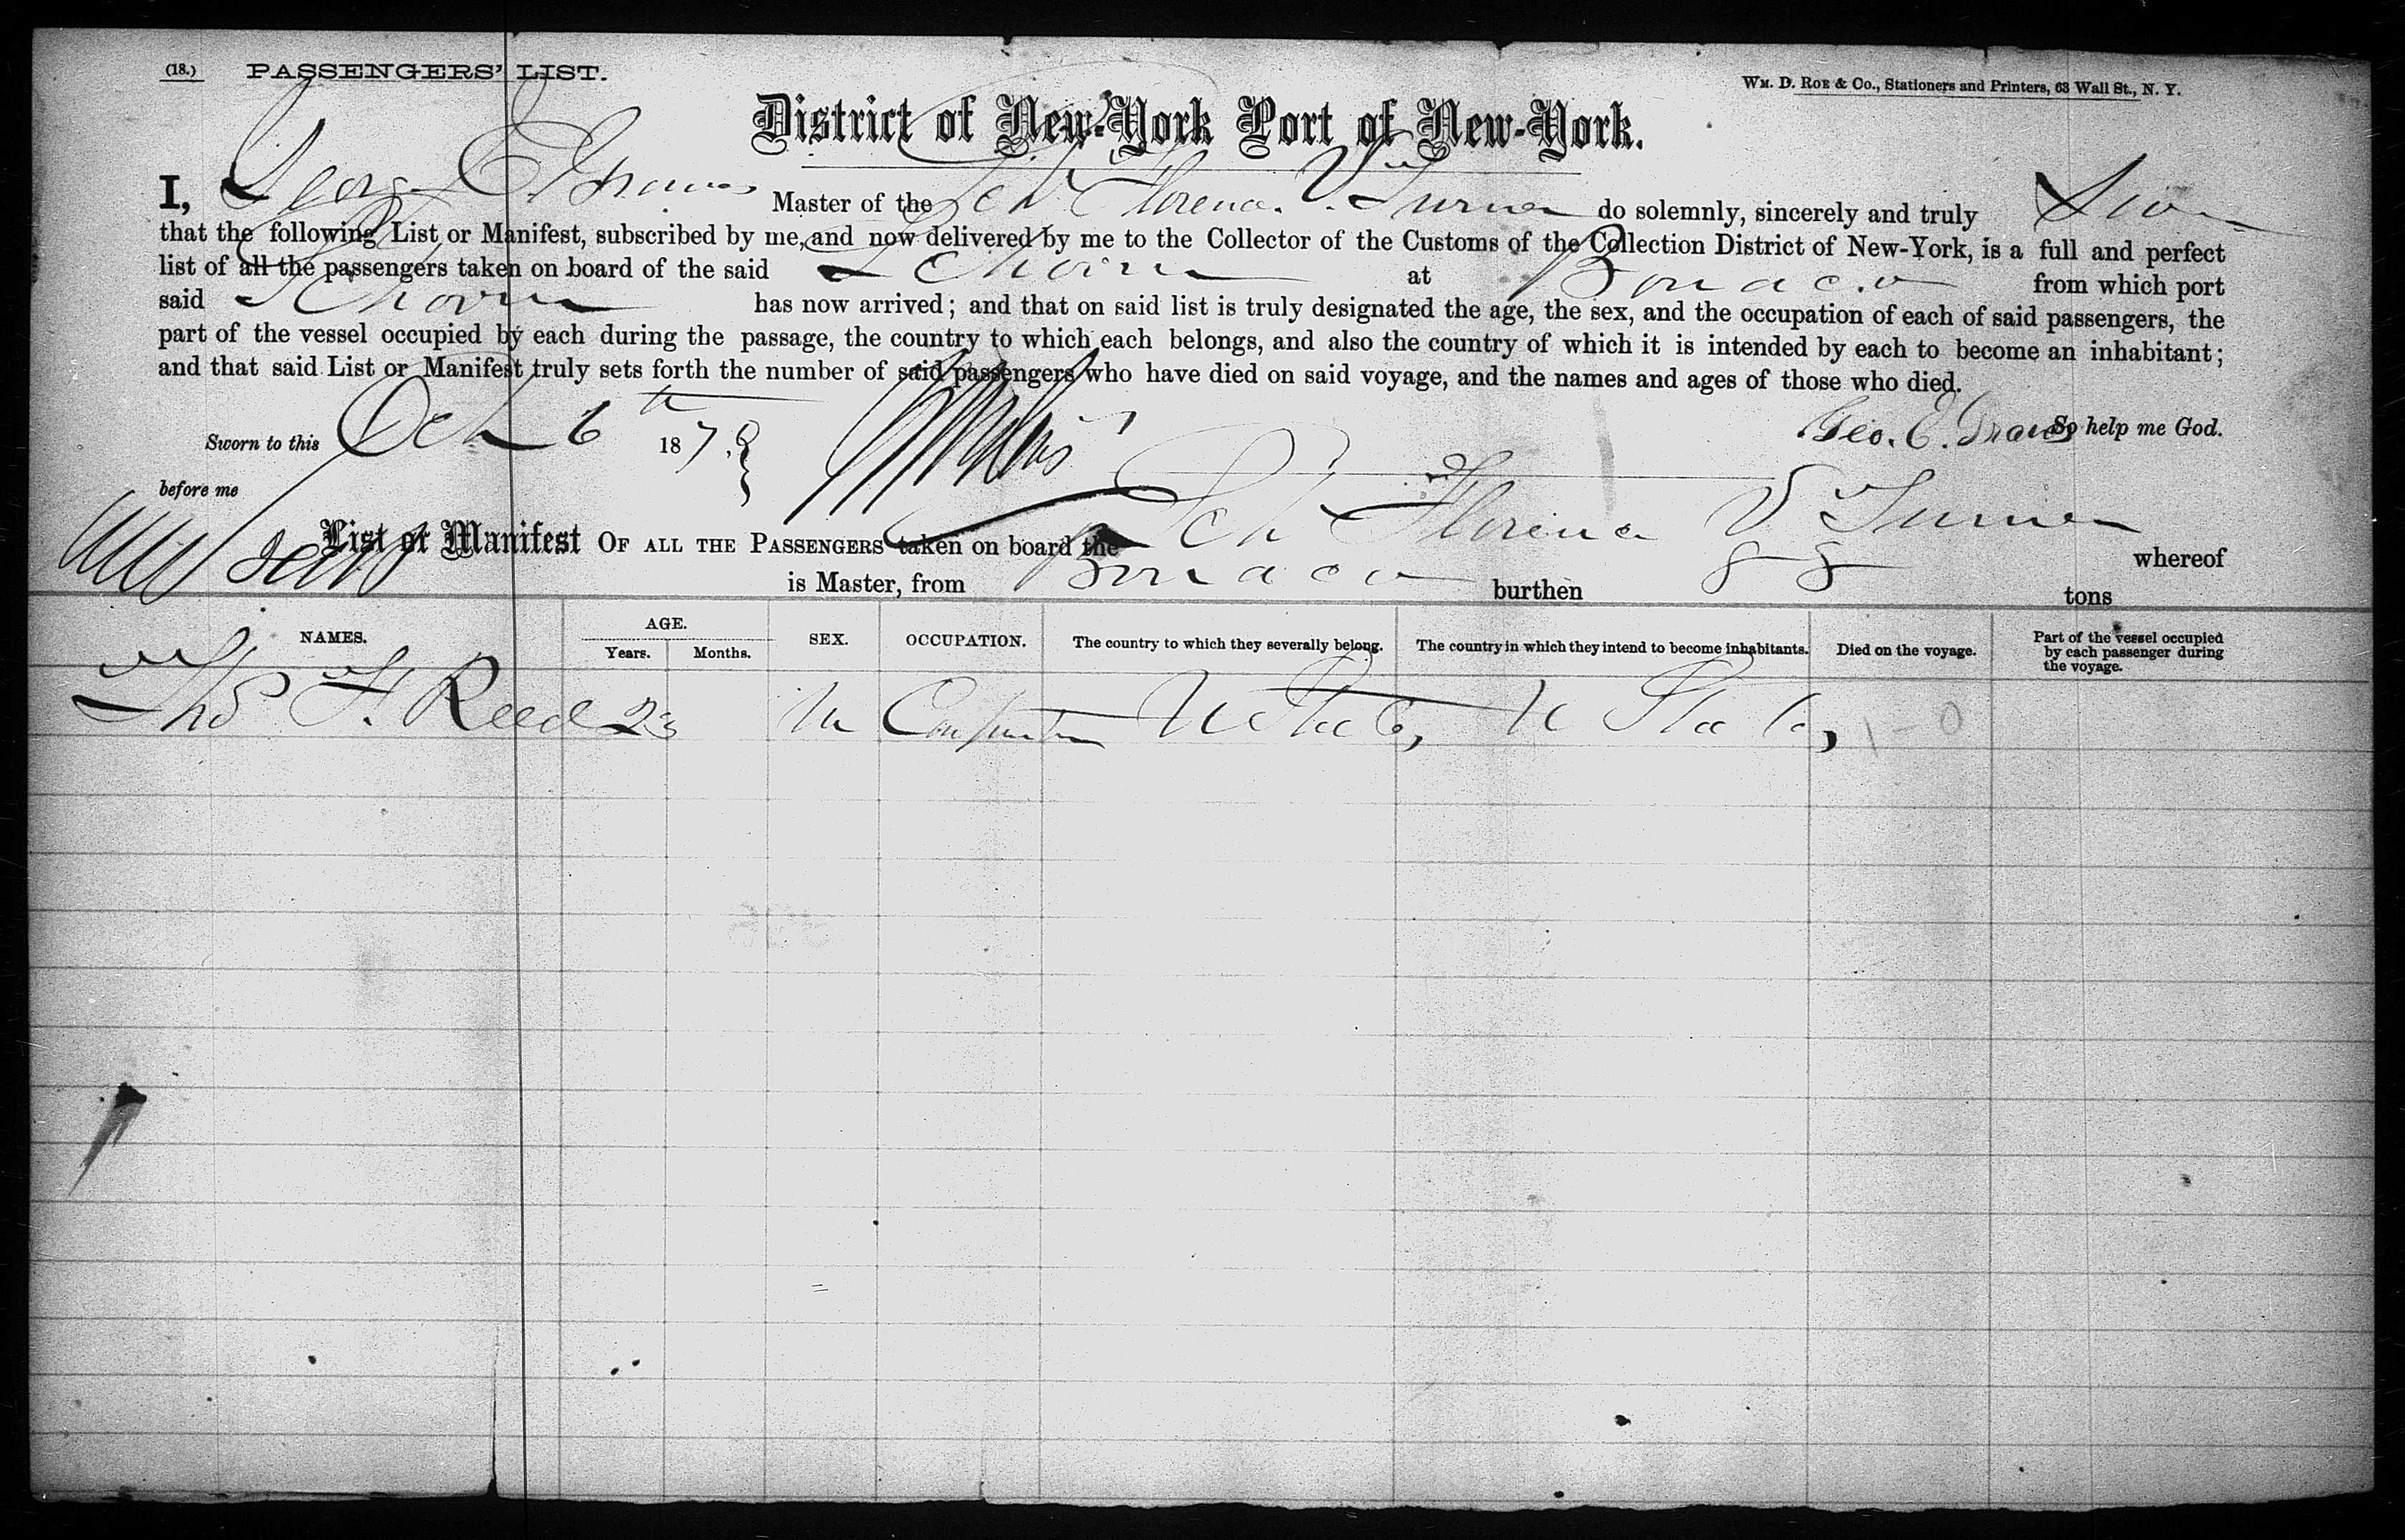 (18.) PASSENGERS' LIST.
WM. D. ROE & Co., Stationers and Printers, 63 Wall St., N. Y.
District of New-York Port of New-York.
I, George E. Master of the Sch Florence V. Turner do solemnly, sincerely and truly Swear
that the following List or Manifest, subscribed by me, and now delivered by me to the Collector of the Customs of the Collection District of New-York, is a full and perfect
list of all the passengers taken on board of the said at Bonacca from which port
said has now arrived; and that on said list is truly designated the age, the sex, and the occupation of each of said passengers, the
part of the vessel occupied by each during the passage, the country to which each belongs, and also the country of which it is intended by each to become an inhabitant;
and that said List or Manifest truly sets forth the number of said passengers who have died on said voyage, and the names and ages of those who died.
Sworn to this Oct 6th 187 Geo. E. So help me God.
before me
List or Manifest OF ALL THE PASSENGERS taken on board the Sch Florence V Turner whereof
is Master, from Bonacca burthen 88 tons
NAMES. AGE. Years. Months. SEX. OCCUPATION. The country to which they severally belong. The country in which they intend to become inhabitants. Died on the voyage. Part of the vessel occupied by each passenger during the voyage.
Thos F. Reed 23 M Carpenter U States, U States, 1-0